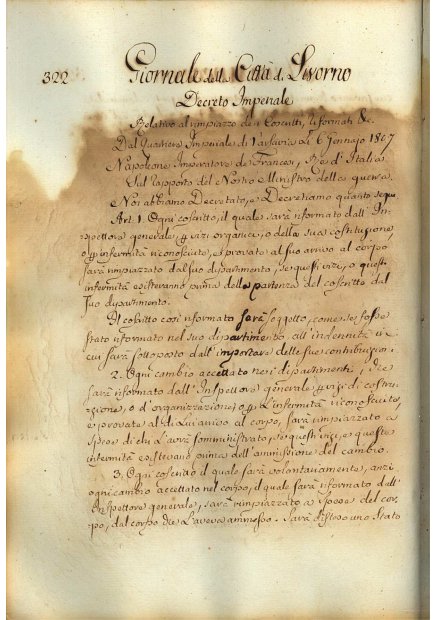 322 Giornale della Città di Livorno
Decreto Imperiale
Relativo al rimpiazzo dei Coscritti, riformati &c.
Dal Quartiere Imperiale di Varsavia li 6 Gennajo 1807
Napoleone Imperatore de Francesi, Re d'Italia
Sul rapporto del Nostro Ministro della guerra
Noi abbiamo Decretato, e Decretiamo quanto segue
Art. 1. Ogni coscritto, il quale sarà riformato dall'In-
spettore generale, per vizi organici, o della sua costituzione
o per infermità riconosciute, e provate al suo arrivo al corpo
sarà rimpiazzato dal suo dipartimento, se questi vizi, o queste
infermità esistevano prima della partenza del coscritto dal
suo dipartimento.
Il coscritto così riformato sarà soggetto, come se fosse
stato riformato nel suo dipartimento all'indennità in
cui sarà sottoposto dall'importare delle sue contribuzioni
2. Ogni cambio accettato nei dipartimenti, che
sarà riformato dall'Inspettore generale per vizi di costru-
zione, o d'organizzazione, o per l'infermità riconosciute,
e provate al di lui arrivo al corpo, sarà rimpiazzato a
spese di chi l'avrà somministrato, se questi vizi, e queste
infermità esistevano prima dell'ammissione del cambio.
3. Ogni coscritto il quale sarà volontariamente, anzi
ogni cambio accettato nel corpo, il quale sarà riformato dall'
Inspettore generale, sarà rimpiazzato a spese del cor-
po, dal corpo che l'aveva ammesso. Sarà disteso uno Stato